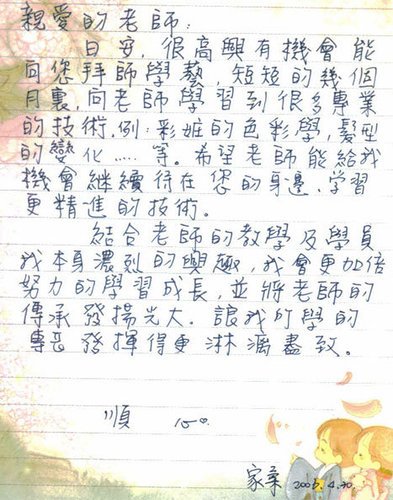 親愛的老師:
日安,很高興有機會能
向您拜師學藝,短短的幾個
月裏,向老師學習到很多專業
的技術,例:彩妝的色彩學,髮型
的變化……等。希望老師能給我
機會繼續待在您的身邊、學習
更精進的技術。
結合老師的教學及學員
我本身濃烈的興趣,我會更加倍
努力的學習成長,並將老師的
傳承發揚光大。讓我所學的
專長發揮得更淋漓盡致。
順 心
家柔 4.30.